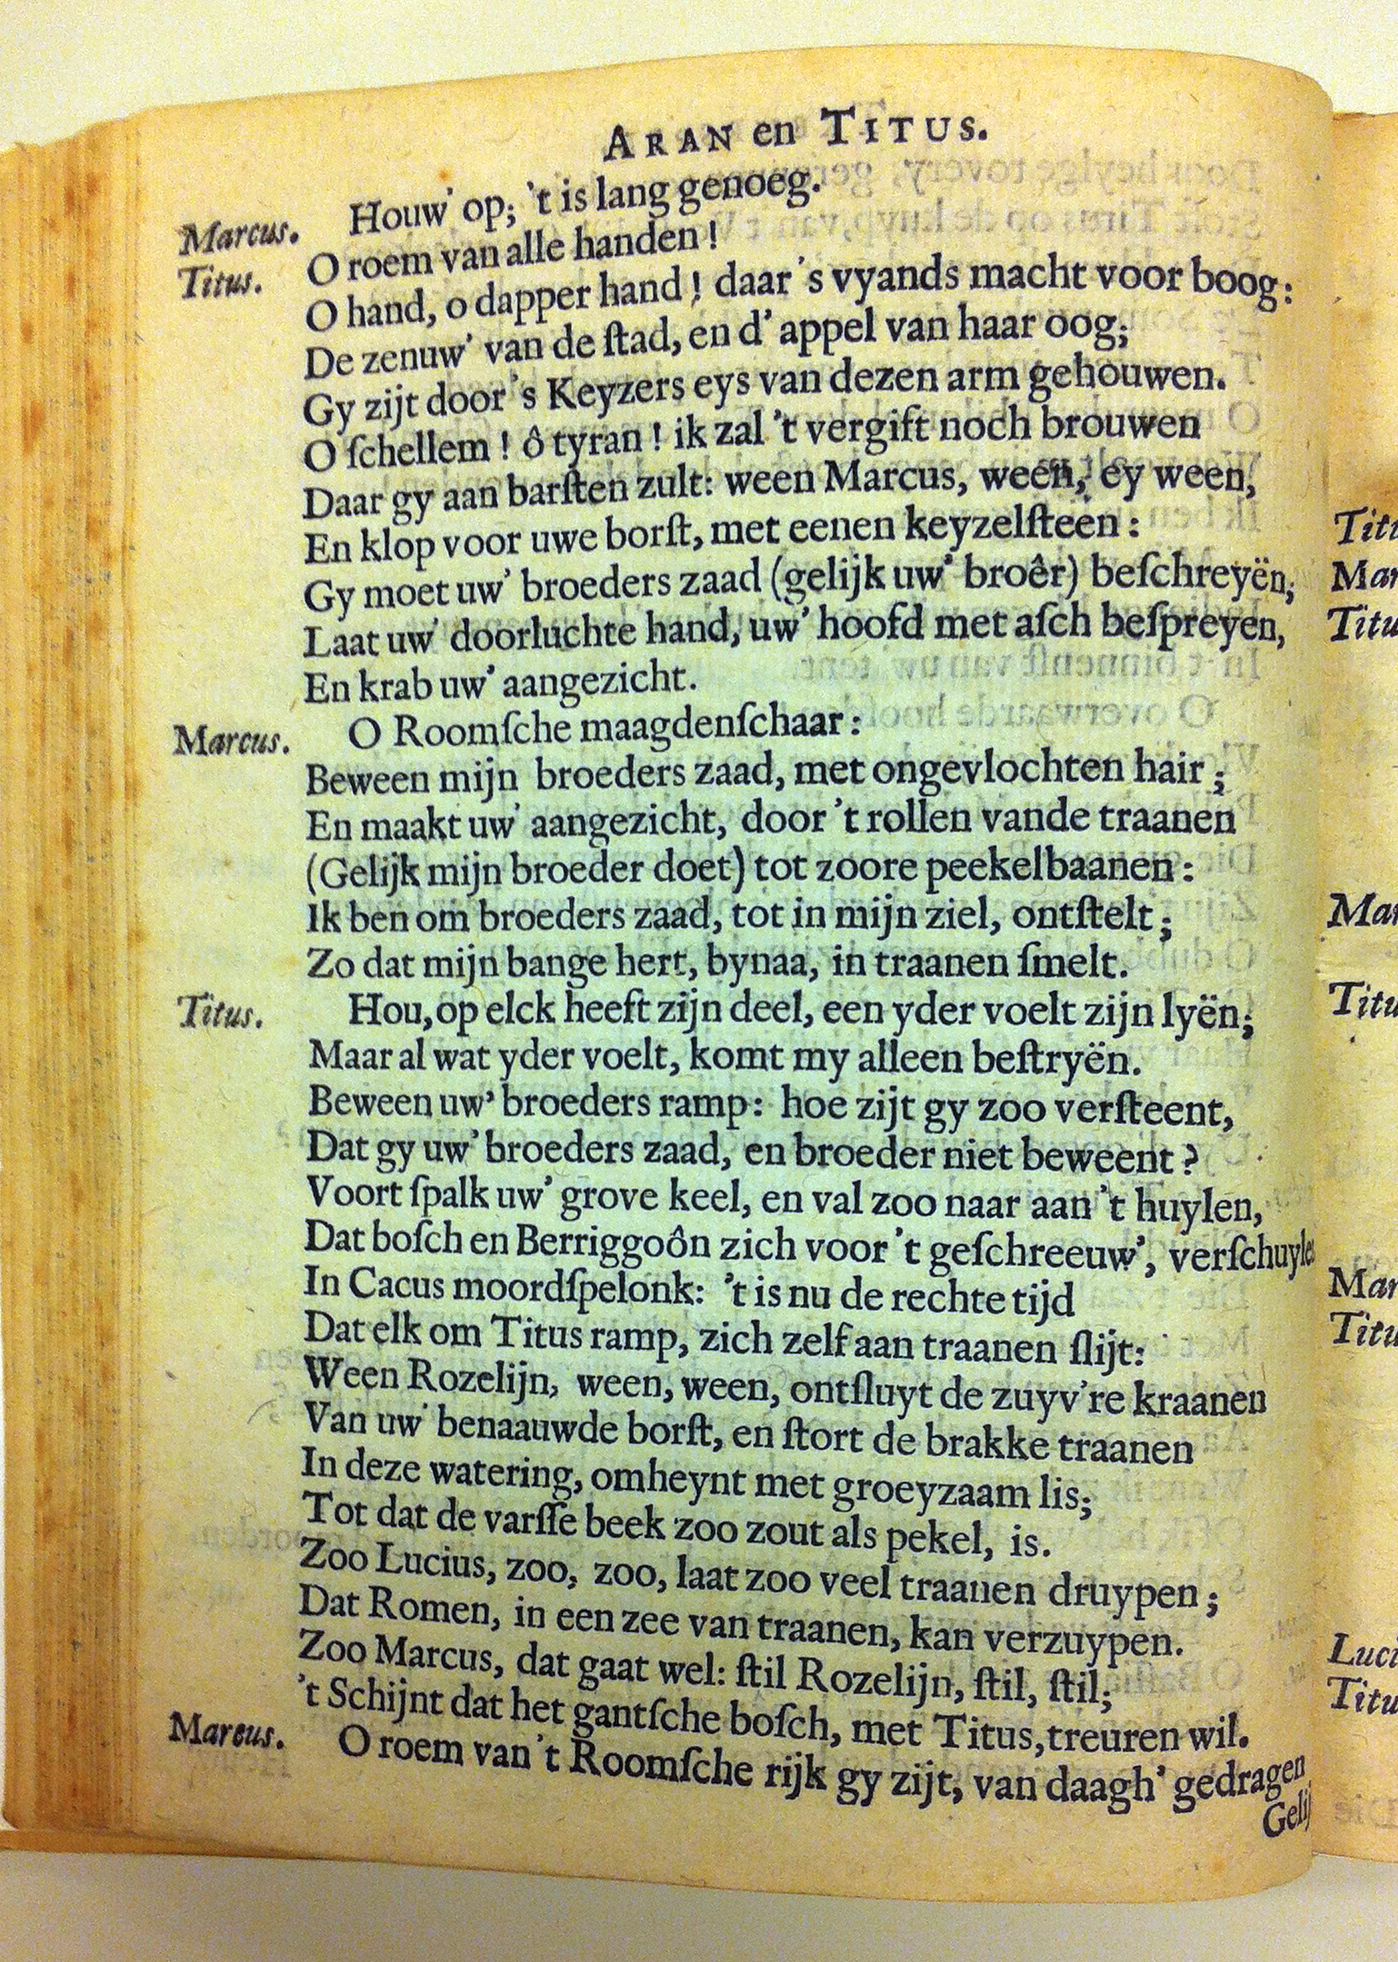 ARAN en TITUS.
Marcus. Houw' op; 't is lang genoeg.
Titus. O roem van alle handen!
O hand, o dapper hand! daar 's vyands macht voor boog:
De zenuw' van de ſtad, en d' appel van haar oog;
Gy zijt door 's Keyzers eys van dezen arm gehouwen.
O ſchellem! ô tyran! ik zal 't vergift noch brouwen
Daar gy aan barſten zult: ween Marcus, ween, ey ween,
En klop voor uwe borſt, met eenen keyzelſteen:
Gy moet uw' broeders zaad (gelijk uw' broêr) beſchreyën;
Laat uw' doorluchte hand, uw' hoofd met aſch beſpreyen,
En krab uw' aangezicht.
Marcus. O Roomſche maagdenſchaar:
Beween mijn broeders zaad, met ongevlochten hair;
En maakt uw' aangezicht, door 't rollen vande traanen
(Gelijk mijn broeder doet) tot zoore peekelbaanen:
Ik ben om broeders zaad, tot in mijn ziel, ontſtelt;
Zo dat mijn bange hert, bynaa, in traanen ſmelt.
Titus. Hou, op elck heeft zijn deel, een yder voelt zijn lyën;
Maar al wat yder voelt, komt my alleen beſtryën.
Beween uw' broeders ramp: hoe zijt gy zoo verſteent,
Dat gy uw' broeders zaad, en broeder niet beweent?
Voort ſpalk uw' grove keel, en val zoo naar aan 't huylen,
Dat boſch en Berriggoôn zich voor 't geſchreeuw', verſchuyle
In Cacus moordſpelonk: 't is nu de rechte tijd
Dat elk om Titus ramp, zich zelf aan traanen ſlijt:
Ween Rozelijn, ween, ween, ontſluyt de zuyv're kraanen
Van uw' benaauwde borſt, en ſtort de brakke traanen
In deze watering, omheynt met groeyzaam lis;
Tot dat de varſſe beek zoo zout als pekel, is.
Zoo Lucius, zoo, zoo, laat zoo veel traanen druypen;
Dat Romen, in een zee van traanen, kan verzuypen.
Zoo Marcus, dat gaat wel: ſtil Rozelijn, ſtil, ſtil;
't Schijnt dat het gantſche boſch, met Titus, treuren wil.
Marcus. O roem van 't Roomſche rijk gy zijt, van daagh' gedragen
Gelij
Titu
Mar
Titu
Mar
Titu
Mar
Titu
Luci
Titu